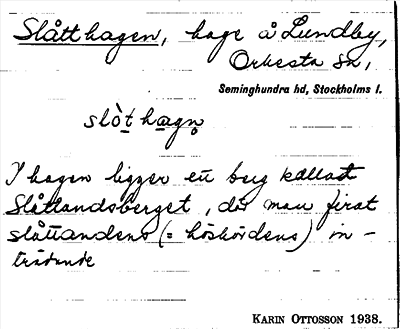 Slåtthagen, hage å Lundby,
Orkesta sn,
Seminghundra hd, Stockholms l.
slòt hægn̥
I hagen ligger ett berg kallat
Slåttandsberget, där man firat
slåttandens (= höskördens) in-
trädande
KARIN OTTOSSON 1938.